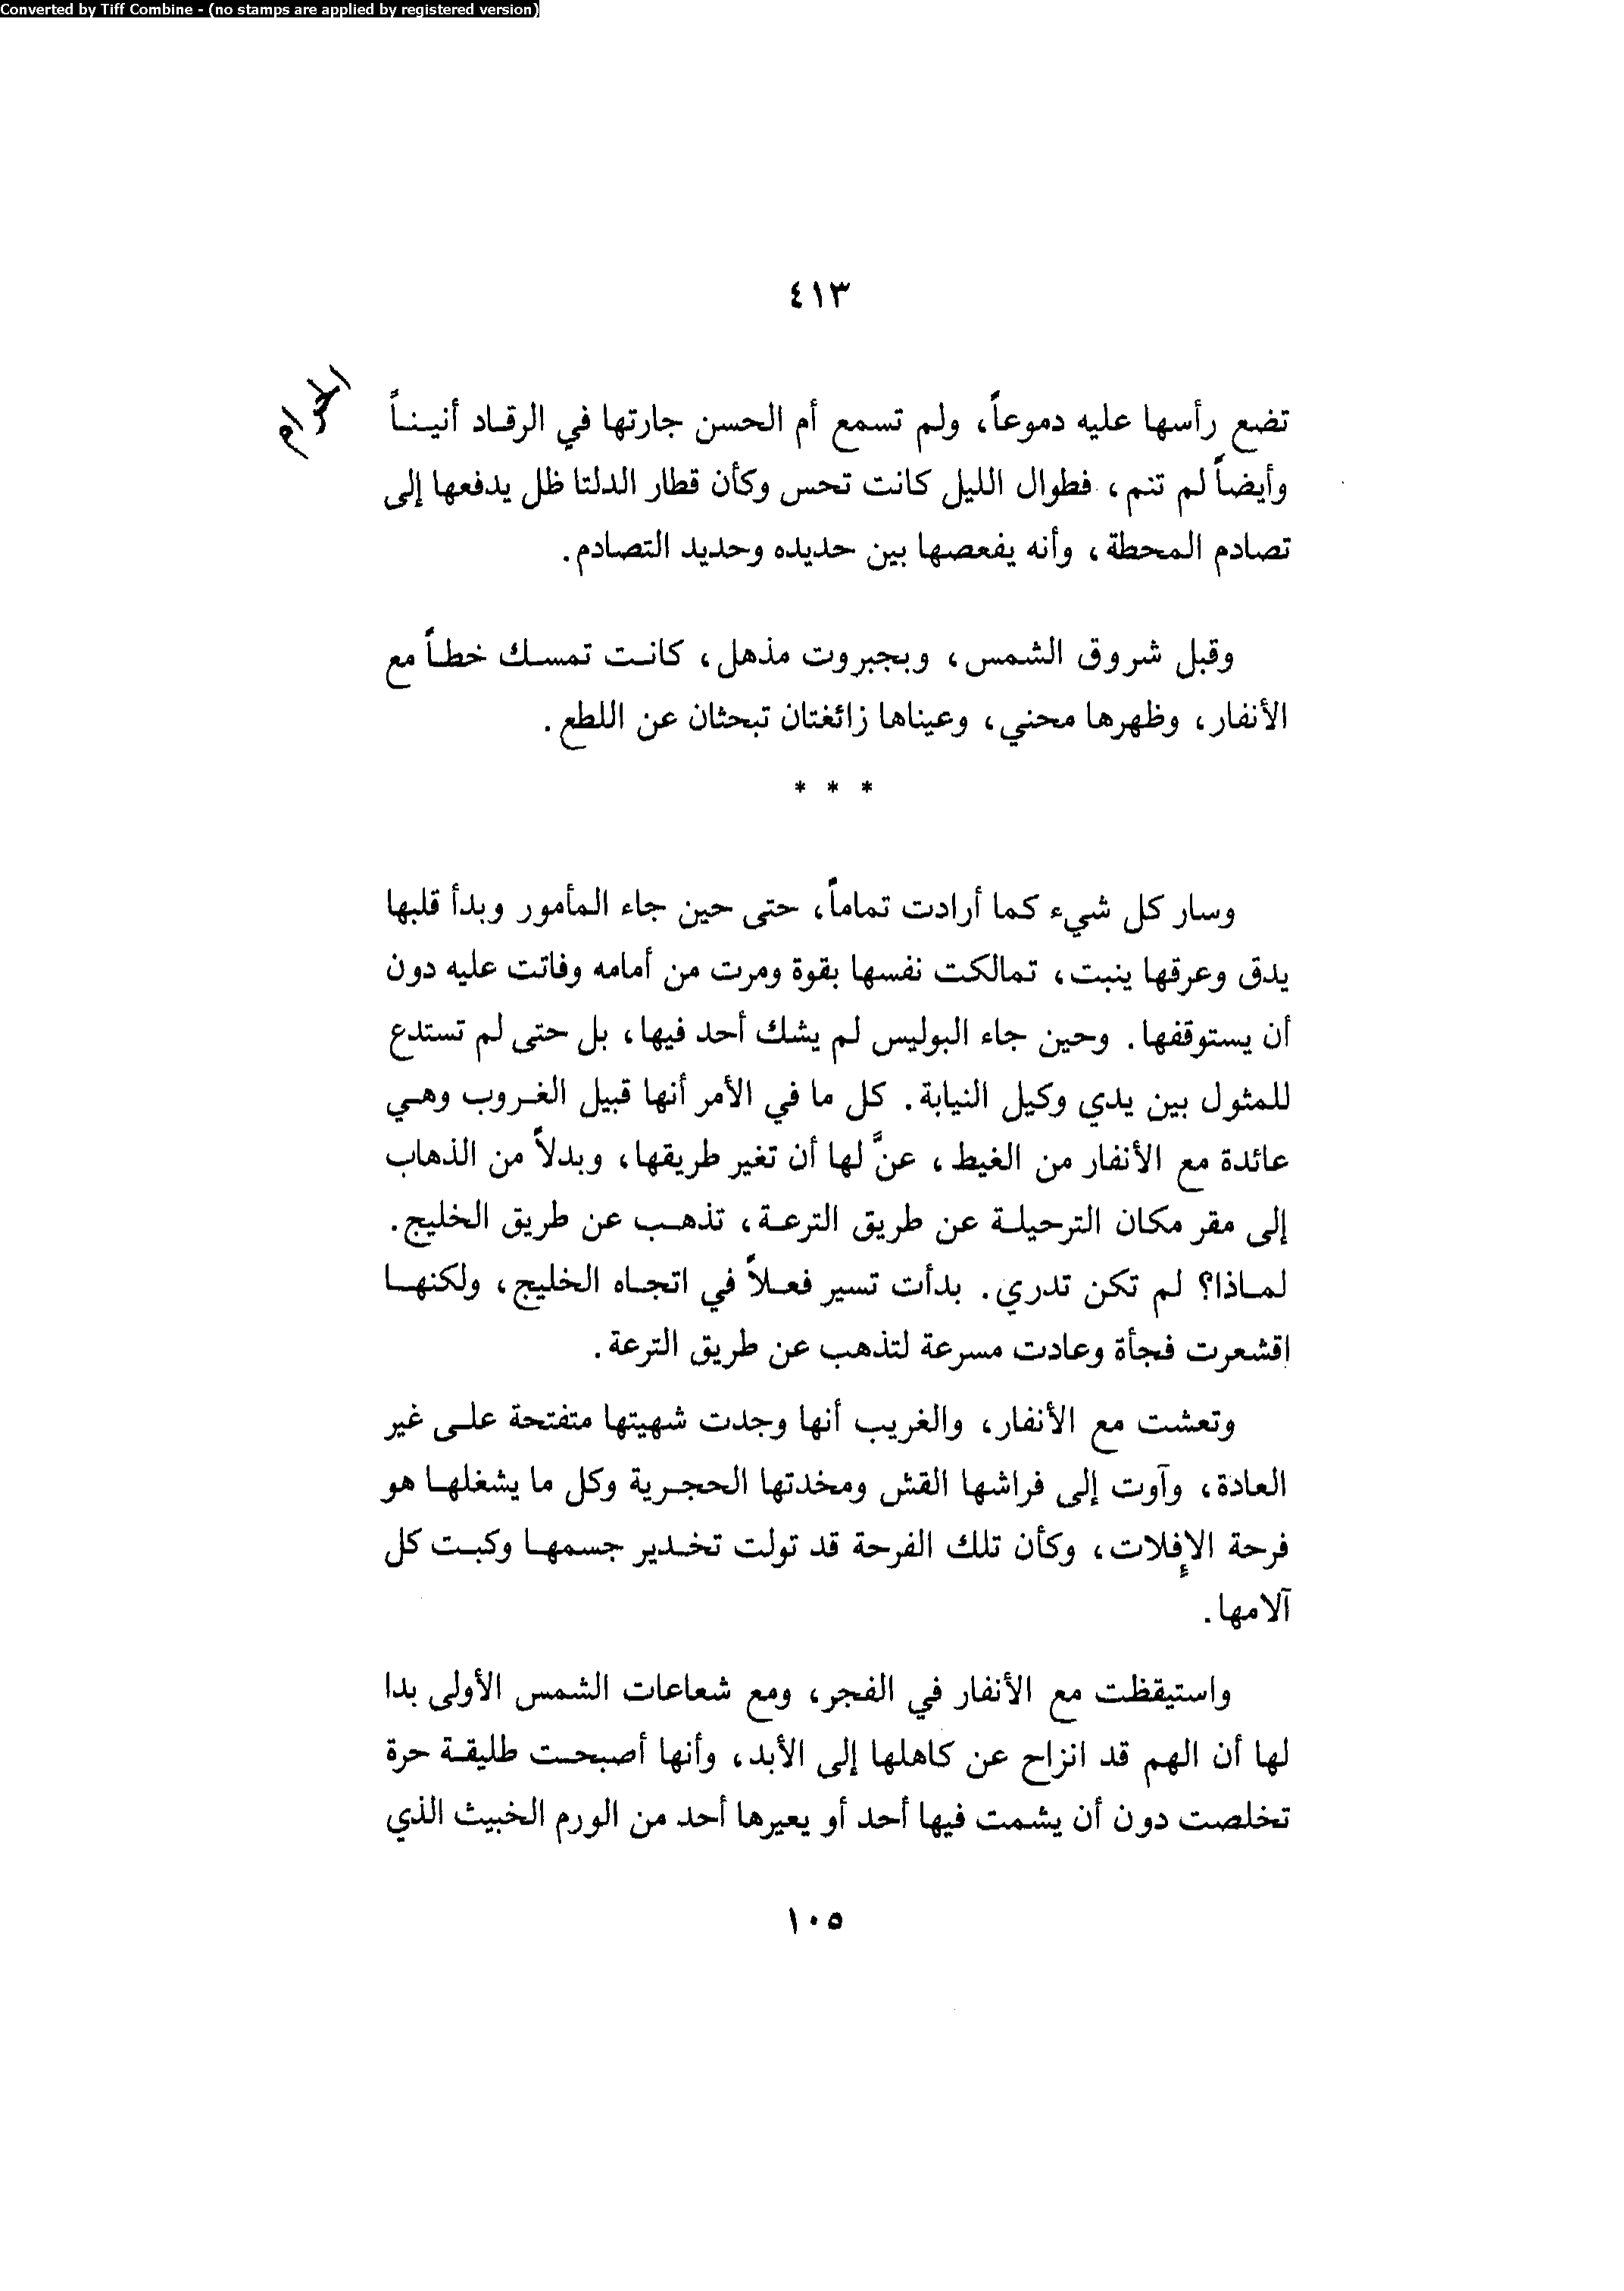 Converted by Tiff Combine - (no stamps are applied by registered version)
٤١٣
الحرام
تضع رأسها عليه دموعاً، ولم تسمع أم الحسن جارتها في الرقاد أنيناً
وأيضاً لم تنم، فطوال الليل كانت تحس وكأن قطار الدلتا ظل يدفعها إلى
تصادم المحطة، وأنه يفعصها بين حديده وحديد التصادم.
وقبل شروق الشمس، وبجبروت مذهل، كانت تمسك خطاً مع
الأنفار، وظهرها محني، وعيناها زائغتان تبحثان عن اللطع.
* * *
وسار كل شيء كما أرادت تماماً، حتى حين جاء المأمور وبدأ قلبها
يدق وعرقها ينبت، تمالكت نفسها بقوة ومرت من أمامه وفاتت عليه دون
أن يستوقفها. وحين جاء البوليس لم يشك أحد فيها، بل حتى لم تستدع
للمثول بين يدي وكيل النيابة. كل ما في الأمر أنها قبيل الغروب وهي
عائدة مع الأنفار من الغيط، عنَّ لها أن تغير طريقها، وبدلاً من الذهاب
إلى مقر مكان الترحيلة عن طريق الترعة، تذهب عن طريق الخليج.
لماذا؟ لم تكن تدري. بدأت تسير فعلاً في اتجاه الخليج، ولكنها
اقشعرت فجأة وعادت مسرعة لتذهب عن طريق الترعة.
وتعشت مع الأنفار، والغريب أنها وجدت شهيتها متفتحة على غير
العادة، وآوت إلى فراشها القش ومخدتها الحجرية وكل ما يشغلها هو
فرحة الإفلات، وكأن تلك الفرحة قد تولت تخدير جسمها وكبت كل
آلامها.
واستيقظت مع الأنفار في الفجر، ومع شعاعات الشمس الأولى بدا
لها أن الهم قد انزاح عن كاهلها إلى الأبد، وأنها أصبحت طليقة حرة
تخلصت دون أن يشمت فيها أحد أو يعيرها أحد من الورم الخبيث الذي
١٠٥